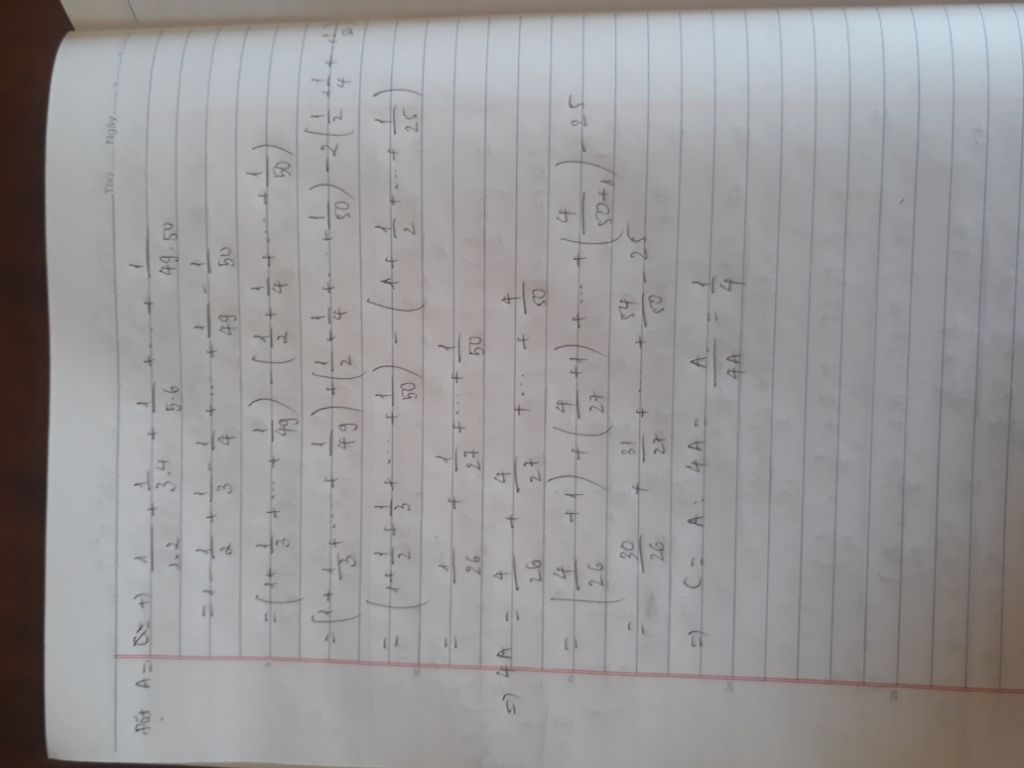 Thứ...... Ngày............
Đặt A = 1/1.2 + 1/3.4 + 1/5.6 + ... + 1/49.50
= 1 - 1/2 + 1/3 - 1/4 + ... + 1/49 - 1/50
= (1 + 1/3 + ... + 1/49) - (1/2 + 1/4 + ... + 1/50)
= (1 + 1/3 + ... + 1/49) + (1/2 + 1/4 + ... + 1/50) - 2(1/2 + 1/4 +
= (1 + 1/2 + 1/3 + ... + 1/50) - (1 + 1/2 + ... + 1/25)
= 1/26 + 1/27 + ... + 1/50
=> 4A = 4/26 + 4/27 + ... + 4/50
= (4/26 + 1) + (4/27 + 1) + ... + (4/50 + 1) - 25
= 30/26 + 31/27 + ... + 54/50 - 25
=> C = A : 4A = A/4A = 1/4